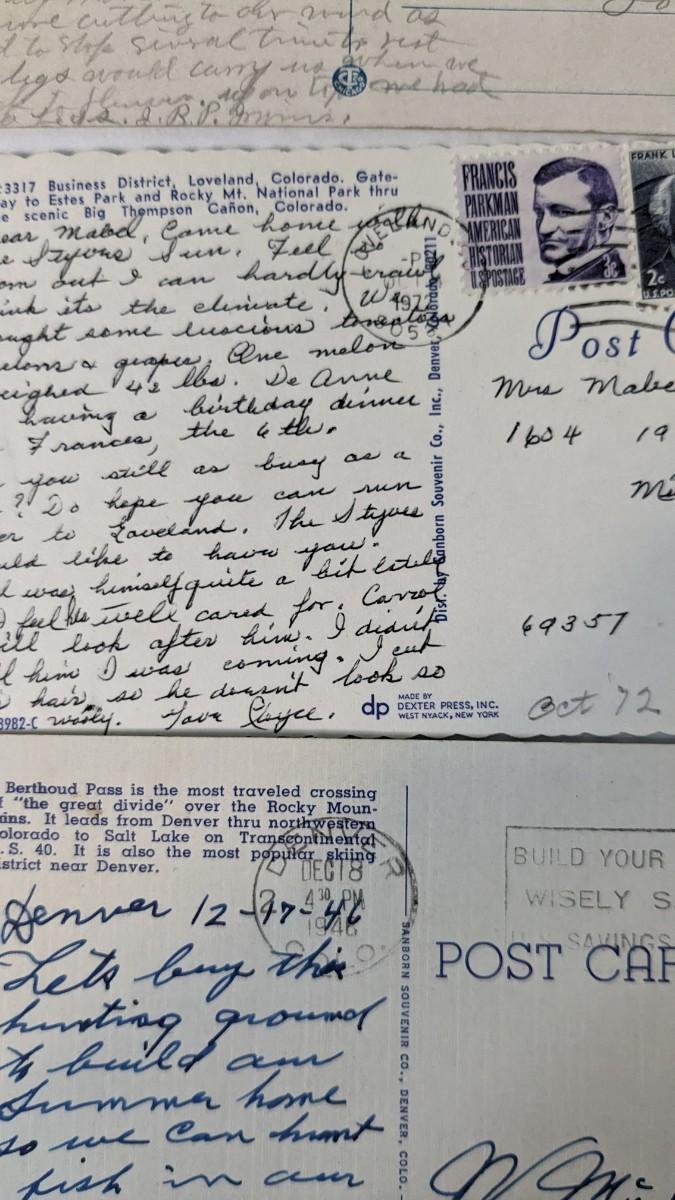 cutting to our wind as
to stop several times to rest
legs would carry us when we
we had
3317 Business District, Loveland, Colorado. Gate-
ay to Estes Park and Rocky Mt. National Park thru
e scenic Big Thompson Cañon, Colorado.
ear Mabel, Came home with
e Styves Sun. Feel so
om out I can hardly crawl
ink its the climate. We
ought some luscious tomatoes
elons & grapes. One melon
eighed 42 lbs. De Anne
having a birthday dinner
Frances, the 6th.
you still as busy as a
? Do hope you can run
er to Loveland. The Styves
uld like to have you.
l was himself quite a bit lately
I feel he's well cared for. Carrol
ill look after him. I didn't
ll him I was coming. I cut
s hair so he doesn't look so
wooly. Love
8982-C
Dist. by Sanborn Souvenir Co., Inc., Denver, Colorado 80211
LOVELAND
1972
FRANCIS
PARKMAN
AMERICAN
HISTORIAN
U.S.POSTAGE
3c
FRANK L
2c
U.S.PO
Post C
Mrs Mabe
1604 19
Mi
69357
Oct '72
dp
MADE BY
DEXTER PRESS, INC.
WEST NYACK, NEW YORK
Berthoud Pass is the most traveled crossing
f "the great divide" over the Rocky Moun-
ains. It leads from Denver thru northwestern
olorado to Salt Lake on Transcontinental
.S. 40. It is also the most popular skiing
istrict near Denver.
DENVER
DEC 18
4 30 PM
1946
COLO.
BUILD YOUR
WISELY S
U.S. SAVINGS
Denver 12-17-46
Lets buy this
hunting ground
to build our
Summer home
so we can hunt
fish in our
SANBORN SOUVENIR CO., DENVER, COLO.
POST CAR